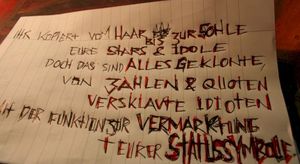 IHR KOPIERT VOM HAAR BIS ZUR SOHLE
EURE STARS & IDOLE
DOCH DAS SIND ALLES GEKLONTE,
VON ZAHLEN & QUOTEN
VERSKLAVTE IDIOTEN
MIT DER FUNKTION ZUR VERMARKTUNG
EURER STATUSSYMBOLE